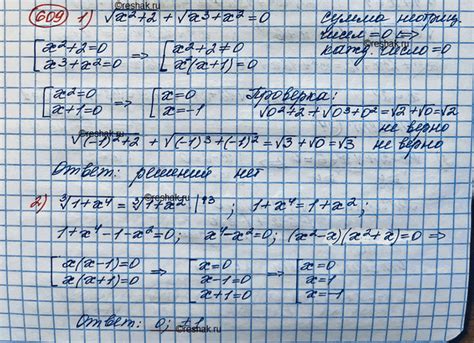 609 1) √x²+2 + √x³+x² = 0 сумма неотриц.
чисел = 0 <=>
[x²+2=0 x³+x²=0 => [x²+2≠0 x²(x+1)=0 кажд. число = 0
[x²=0 x+1=0 => [x=0 x=-1 Проверка:
√0²+2 + √0³+0² = √2 + √0 = √2
не верно
√(-1)²+2 + √(-1)³+(-1)² = √3 + √0 = √3 не верно
Ответ: решений нет
2) ∛1+x⁴ = ∛1+x² |↑3 ; 1+x⁴ = 1+x² ;
1+x⁴-1-x²=0; x⁴-x²=0; (x²-x)(x²+x)=0 =>
[x(x-1)=0 x(x+1)=0 => [x=0 x-1=0 x+1=0 => [x=0 x=1 x=-1
Ответ: 0; ±1
©reshak.ru